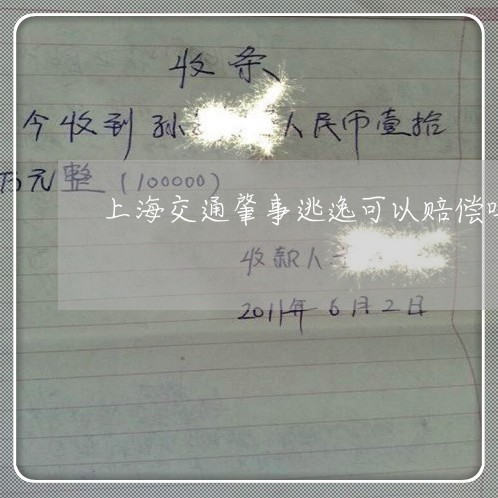 收条
今收到孙 人民币壹拾
万元整(100000)
上海交通肇事逃逸可以赔偿
收款人
2011年6月2日